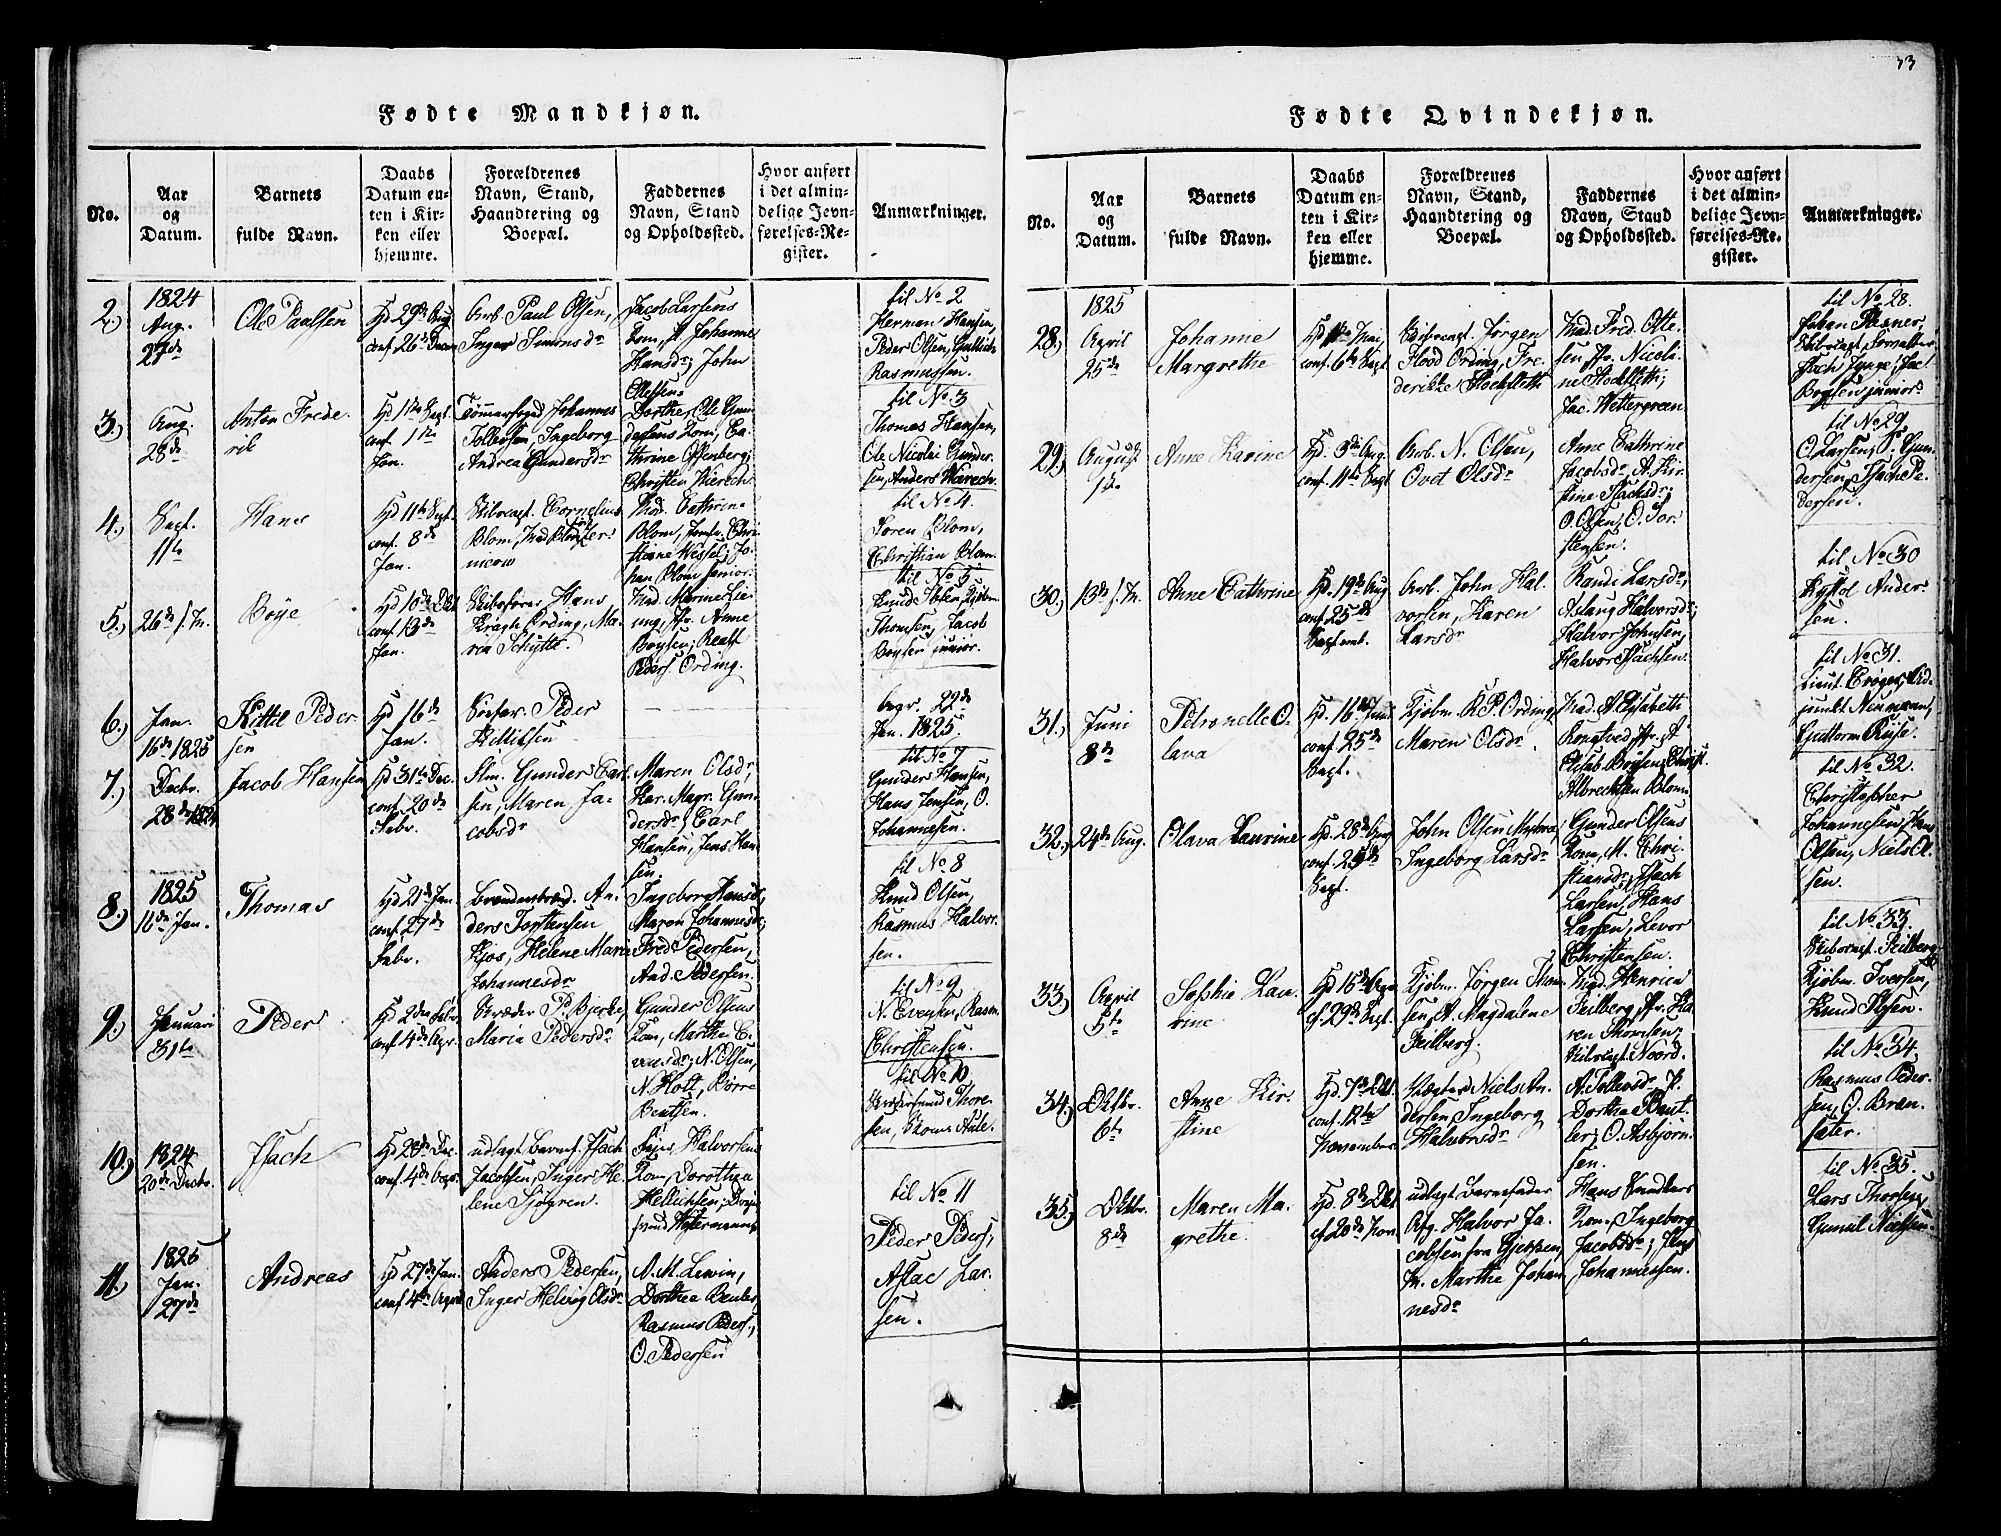 13
Fødte Mandkjøn.
No.
Aar
og
Datum.
Barnets
fulde Navn.
Daabs
Datum en-
ten i Kir-
ken eller
hjemme.
Forældrenes
Navn, Stand,
Haandtering og
Boepæl.
Faddernes
Navn, Stand
og Opholdssted.
Hvor anført
i det almin-
delige Jevn-
førelses-Re-
gister.
Anmærkninger.
2.)
1824
Aug.
27de
Ole Paulsen
Hd 29de Aug
conf 26de Decem
Arb. Paul Olsen,
Inger Simonsdr
Jacob Larsens
Kom, Johanne
Hansdr; John
Ellefsen
til No 2
Herman Hansen,
Peder Olsen,
Rasmussen.
3.)
Aug.
28de
Anton Frede-
rik
Hd 1te Sept.
conf. 1te
Jan.
Tømmerfoged Johannes
Tollefsen, Ingeborg
Andrea Gundersdr
Dorthe, Ole Gun-
dersens Kom, Ca-
thrine Offenberg,
Christen Wierch
til No 3
Thomas Hansen,
Ole Nicolai Gunder-
sen, Anders Warech
4.)
Sept.
11te
Hans
Hd 11te Sept.
conf. 8de
Jan.
Skibscapt. Cornelius
Blom,
Mad. Cathrine
Blom, Jomfr. Chri-
stiane Wessel; Jo-
han Blom senior
til No 4.
Søren Blom,
Christian Blom.
5.)
26de f. M.
Bøye
Hd 10de Oct
conf 13de
Jan.
Skibsfører Hans
Kragh Ording, Ma-
ria Schytte.
Mad. Maren Lie-
ung, Jfr. Anne
Boysen;
Peders. Ording.
til No 5
Knud Ibsen, Kjøbm.
Thomsen, Jacob
Boysen junior.
6.)
Jan.
16de 1825
Kittil Peder-
sen
Hd 16de
Jan.
Peder
Kittilsen
begr. 22de
Jan. 1825.
7.)
Decbr.
28de 1824
Jacob Hansen
Hd 31te Dec.
conf. 20de
Febr.
Slm. Gunder Carl-
sen, Maren Ja-
cobsdr
Maren Olsdr,
Kar. Magr. Gun-
dersdr; Carl
Hansen, Jens Han-
sen.
til No 7
Gunder Hansen,
Hans Jensen, O.
Johannesen.
8.)
1825
16de Jan.
Thomas
Hd 21de Jan
conf. 27de
Febr.
Brændevinsbrænd. An-
ders Torstensen
Kjos, Helene Marie
Johannesdr
Ingeborg Hansdr,
Maren Johannesdr;
Fred Pedersen,
And. Pedersen.
til No 8
Knud Olsen,
Rasmus Halvor-
sen.
9.)
Januari
31te
Peder
Hd 2den Febr.
conf. 4de Apr.
Skræder P. Bjerke,
Maria Pedersdr
Gunder Olsens
Kom, Marthe E-
vensdr; N. Olsen,
N. Holt, Børre
Bentsen.
til No 9
N. Evensen, Rasm.
Christensen.
10.)
1824
20de Decbr.
Isach
Hd 28de Dec.
conf. 4de Apr.
udlagt Barnef. Isach
Jacobsen, Inger He-
lene Sjøgren.
Halvorsens
Kom, Dorothea
Hellichsen;
til No 10
Thore-
sen, Thomas
11.)
1825
Jan.
27de
Andreas
Hd 27de Jan.
conf. 4de April
Anders Pedersen,
Inger Helvig Olsdr
A. M. Lewin,
Dorthea Beutler,
Rasmus Peders.,
O. Pedersen
til No 11
Peder Peders,
Aslac Lar-
sen.
Fødte Qvindekjøn.
No.
Aar
og
Datum.
Barnets
fulde Navn.
Daabs
Datum en-
ten i Kir-
ken eller
hjemme.
Forældrenes
Navn, Stand,
Haandtering og
Boepæl.
Faddernes
Navn, Stand
og Opholdssted.
Hvor anført
i det almin-
delige Jevn-
førelses-Re-
gister.
Anmærkninger.
28.)
1825
April
25de
Johanne
Margrethe
Hd 1te Mai,
conf. 6te Sept
Skibscapt. Jørgen
Flood Ording, Fre-
derikke Stockfleth
Mad. Fred. Otte-
sen, Jfr. Nicoli-
ne Stockfleth;
Jac. Wettergreen
til No 28.
Johan Plesner,
Skibscapt.
Isach Junge, Jac.
Boysen junior
29.)
August
1te
Anne Karine
Hd. 3de Aug.
conf. 11te Sept
Arb. N. Olsen,
Ovet Olsdr
Anne Cathrine
Jacobsdr, A. Kir-
stine Isachsdr;
O. Olsen, O. Tor-
stensen.
til No 29
O. Larsen, P. Gun-
dersen, Isach Pe-
dersen.
30.)
13de f. M.
Anne Cathrine
Hd. 19de Aug
conf 25de
Septemb.
Arb. John Hal-
vorsen, Karen
Larsdr
Randi Larsdr,
Aslaug Halvorsdr;
Halvor Johnsen,
Halvor Isachsen.
til No 30
Kystol Ander-
sen.
31.)
Juni
8de
Petronelle O-
lava
Hd. 16de Juni
conf. 25de
Sept.
Kjøbm. K. P. Ording,
Maren Olsdr
Mad. A. Elisabeth
Rougtved, Jfr. A.
Elisab. Boysen; Christ.
Albrechtsen Blom
til No 31.
Lieut. Crøger, Ad-
junkt Neumann,
Guttorm Riise.
32.)
24de Aug.
Olava Laurine
Hd. 28de Aug
conf. 25de
Sept.
John Olsen Myhra,
Ingeborg Larsdr
Gunder Olsens
Kom, M. Chri-
stiansdr; Isach
Larsen, Hans
Larsen, Levor
Christensen.
til No 32.
Christopher
Johannesen, Hans
Olsen, Niels Ol-
sen.
33.)
April
5te
Sophie Lau-
rine
Hd 15de Apr
cf. 29de Sept.
Kjøbm. Jørgen Thom-
sen, A. Magdalene
Feilberg.
Mad. Henrica
Feilberg, Jfr. Ka-
ren Thomsen;
Skibscapt. Noord.
til No 33
Skibscapt. Feilberg,
Kjøbm. Iversen,
Knud Ibsen.
34.)
Oktbr.
6te
Anne Kir-
stine
Hd. 7de Okt
conf. 12te
November
Vægter Niels An-
dersen, Ingeborg
Halvorsdr
A. Tollevsdr. P.
Dorthea Beut-
ler; O. Asbjørn-
sen.
til No 34.
Rasmus Peder-
sen, O. Bran-
sæter.
35.)
Oktbr.
8de
Maren Ma-
grethe
Hd. 8de Okt
cf. 20de Nov.
udlagt Barnefader
Halvor Ja-
cobsen fra Gjerpen,
Marthe Johan-
nesdr
Hans Smedkers
Kone, Ingeborg
Jacobsdr; Jens
Johannessen.
til No 35.
Lars Thorsen,
Gunul Nielsen.